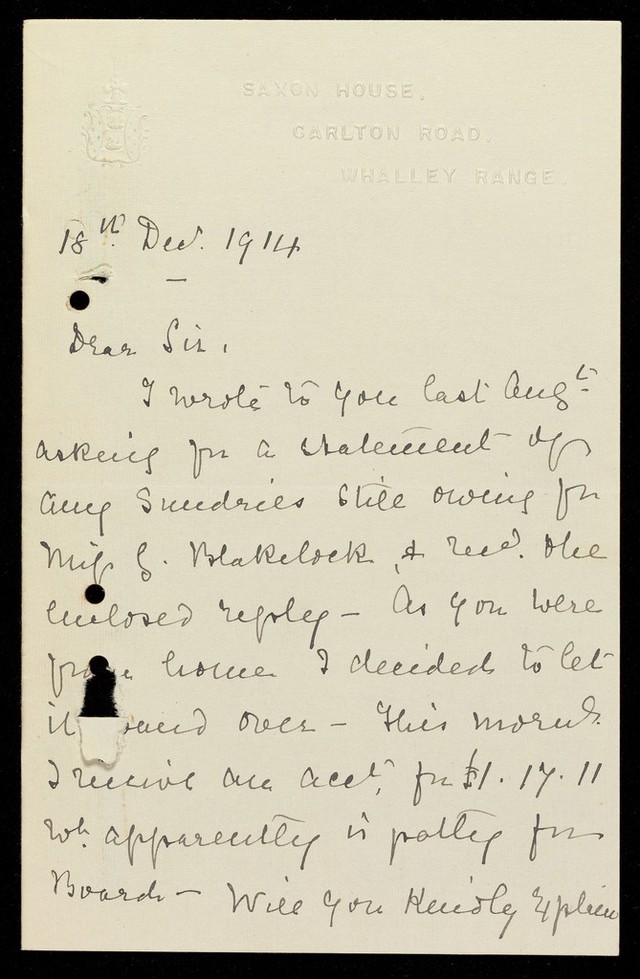 SAXON HOUSE,
CARLTON ROAD,
WHALLEY RANGE.
18th. Decr. 1914
Dear Sir,
I wrote to you last Augt
asking for a statement of
any Sundries still owing for
Miss G. Blakelock, & recd. the
enclosed reply — As you were
from home I decided to let
it stand over — This morng.
I receive an acct. for £1.17.11
wh. apparently is partly for
Board — Will you Kindly Explain